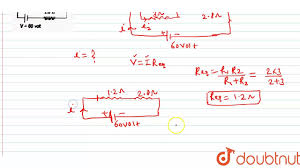 V = 60 volt
3Ω
2.8Ω
i
i₂
+ -
60volt
i = ?
V = I Req
Req = R₁R₂ / R₁+R₂ = 2×3 / 2+3
Req = 1.2Ω
1.2Ω 2.8Ω
i
+ -
60volt
doubtnut